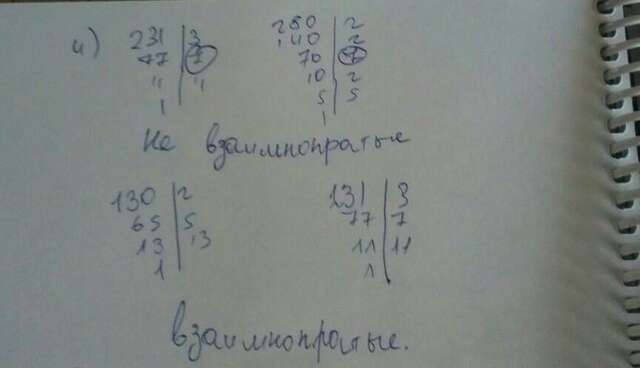 4) 231 | 3 280 | 2
77 | 7 140 | 2
11 | 11 70 | 7
1 | 10 | 2
5 | 5
1
Не взаимнопратые
130 | 2 231 | 3
65 | 5 77 | 7
13 | 13 11 | 11
1 | 1
взаимнопратые.